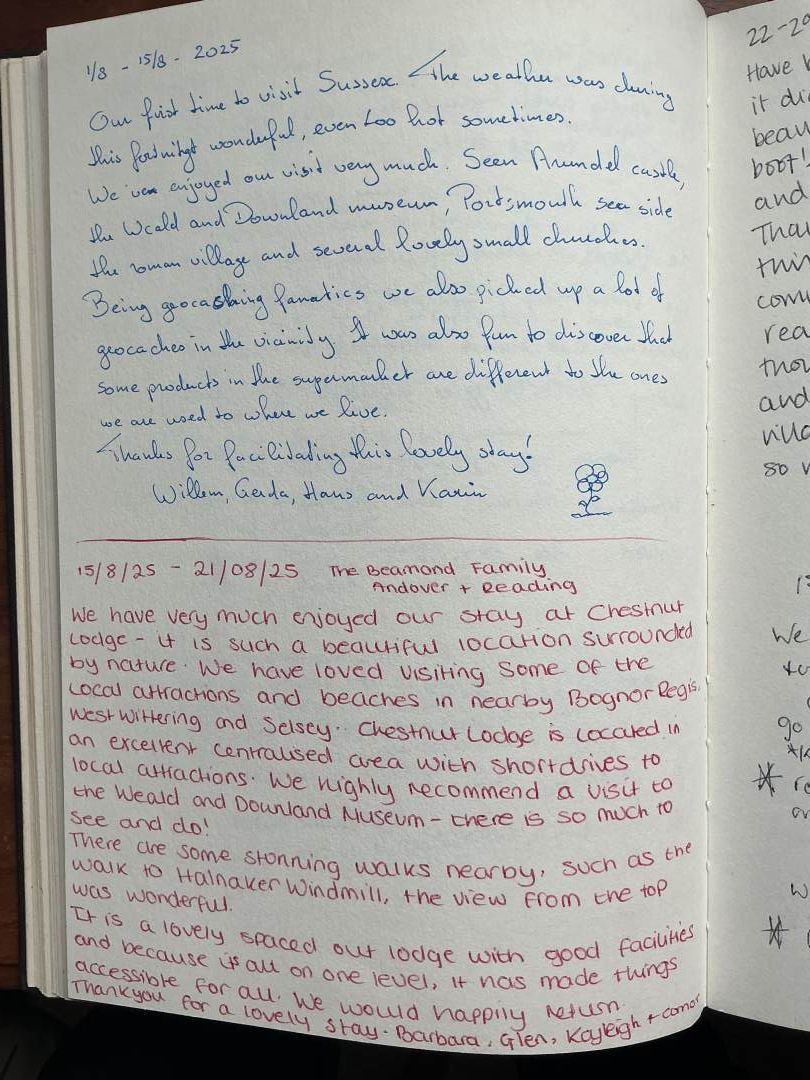 1/8 - 15/8 - 2025
Our first time to visit Sussex. The weather was during
this fortnihgt wonderful, even too hot sometimes.
We enjoyed our visit very much. Seen Arundel castle,
the Weald and Downland museum, Portsmouth sea side
the roman village and several lovely small churches.
Being geocaching fanatics we also picked up a lot of
geocaches in the vicinity. It was also fun to discover that
some products in the supermarket are different to the ones
we are used to where we live.
Thanks for facilitating this lovely stay!
Willem, Gerda, Hans and Karin
15/8/25 - 21/08/25 The Beamond Family
Andover + Reading
We have very much enjoyed our stay at Chestnut
Lodge - it is such a beautiful location surrounded
by nature. We have loved visiting some of the
local attractions and beaches in nearby Bognor Regis,
West Wittering and Selsey. Chestnut Lodge is located in
an excellent centralised area with short drives to
local attractions. We highly recommend a visit to
the Weald and Downland Museum - there is so much to
see and do!
There are some stunning walks nearby, such as the
walk to Halnaker Windmill, the view from the top
was wonderful.
It is a lovely spaced out lodge with good facilities
and because is all on one level, it has made things
accessible for all. We would happily return.
Thankyou for a lovely stay. Barbara, Glen, Kayleigh + Conor
22-20
Have
it
beau
boot!
and
Than
thin
comm
rea
thou
and
villa
so
We
go